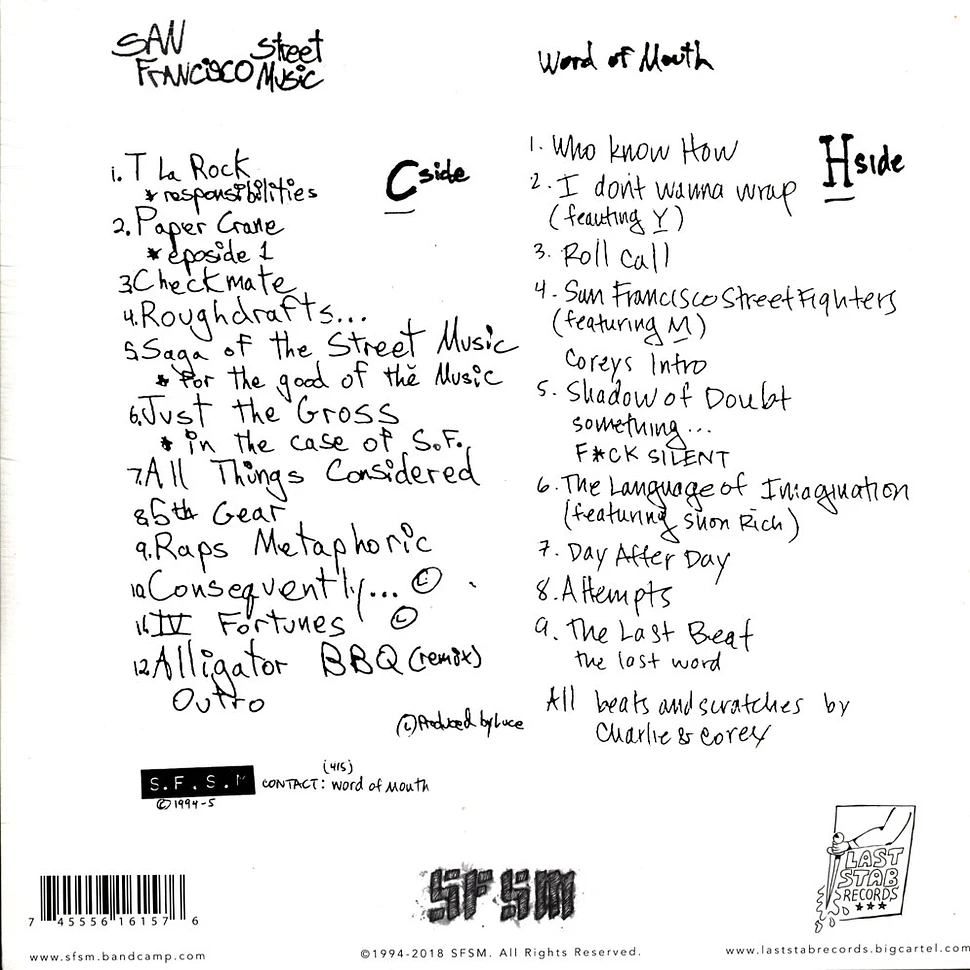 SAN Street
FRANCISCO MUSIC
Word of Mouth
C side
1. T La Rock
* responsibilities
2. Paper Crane
* eposide 1
3. Checkmate
4. Roughdrafts...
5. Saga of the Street Music
* For the good of the Music
6. Just the Gross
* in the case of S.F.
7. All Things Considered
8. 5th Gear
9. Raps Metaphoric
10. Consequently... (L)
11. IV Fortunes (L)
12. Alligator BBQ (remix)
Outro
(L) Produced by Luce
H side
1. Who know How
2. I don't wanna wrap
(feauting Y)
3. Roll Call
4. San Francisco Street Fighters
(featuring M)
Coreys Intro
5. Shadow of Doubt
something...
F*CK SILENT
6. The Language of Imagination
(featuring Shon Rich)
7. Day After Day
8. Attempts
9. The Last Beat
the last word
All beats and scratches by
Charlie & Corey
S.F.S.M CONTACT: (415) Word of Mouth
© 1994-5
LAST
STAB
RECORDS
SFSM
7 45556 16157 6
www.sfsm.bandcamp.com
©1994-2018 SFSM. All Rights Reserved.
www.laststabrecords.bigcartel.com